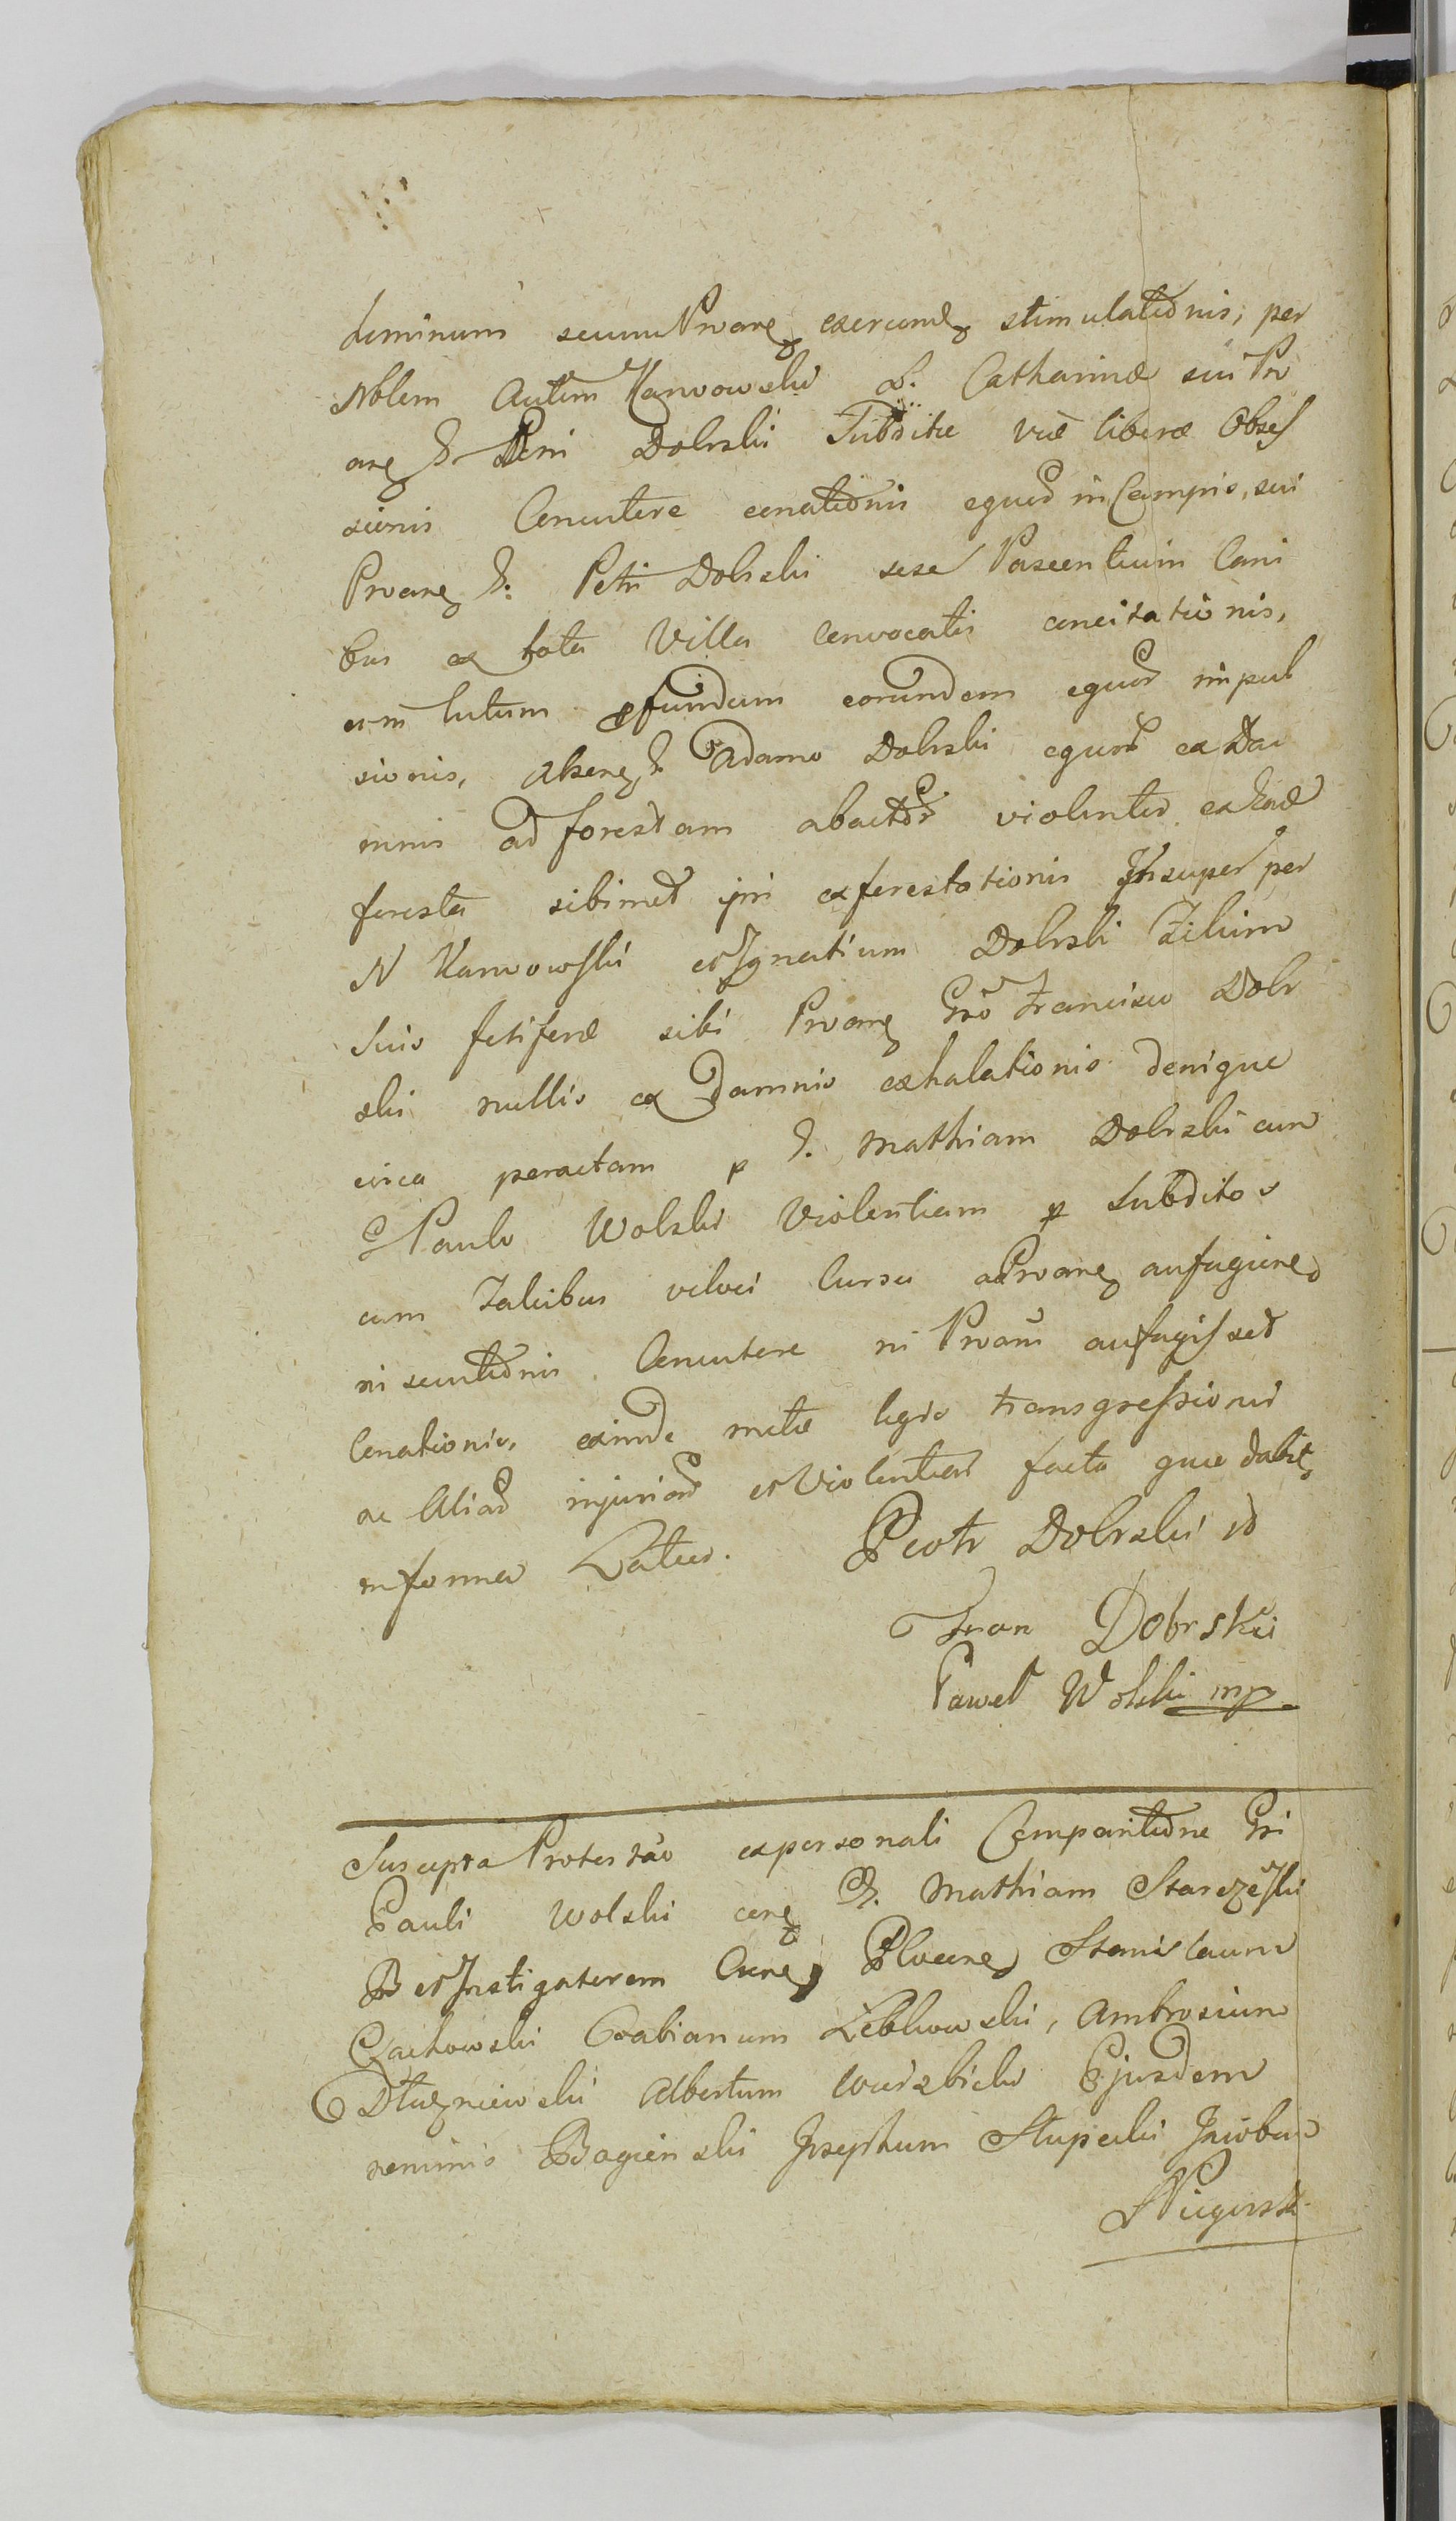 hominum secum Protane exercend stimulationis, per
Nblem Autem Karwowski L. Catharinæ sui Prot
ane G. Petri Dobrski Subditæ viæ liberæ Obses
sionis Concutere conationis equor in Campis, sui
Protane G. Petri Dobrski sese Pascentium Cani
bus ex tota Villa Convocatis concitationis,
et in lutum pfundum eorundem equor impul
sionis, absene G Adamo Dobrski equor ex Da
mnis ad forestam abactor violenter ex ead
foresta sibimet ipsi exforestationis Insuper per
N Karwowski et Ignatium Dobrski Filium
Suis fetiferæ sibi Protane Gso Francisco Dobr
ski nullis ex Damnis exhalationis denique
circa peractam p G. Mathiam Dobrski cum
G Paulo Wolski Violentiam p Subditos
cum Falcibus veloci Cursu a Protane aufugiene
insecutionis Concutere ni Protans aufugisset
Conationis, exinde mete legis transgressionis
ac Aliar injuriar et Violentiar facta quæ dabit
in forma Latius. Piotr Dobrski
Fran Dobrski
Paweł Wolski mp

Suscepta Protestao ex personali Comparitione Gsi
Pauli Wolski cone G. Mathiam Starczeski
B et Instigatorem Cone Plocene Stanislaum
Czachowski Fabianum Zebkowski, Ambrosium
Dłuzniewski Albertum Wierzbicki Ejusdem
nominis Bagienski Josephum Słupecki Jacobum
Niegursk